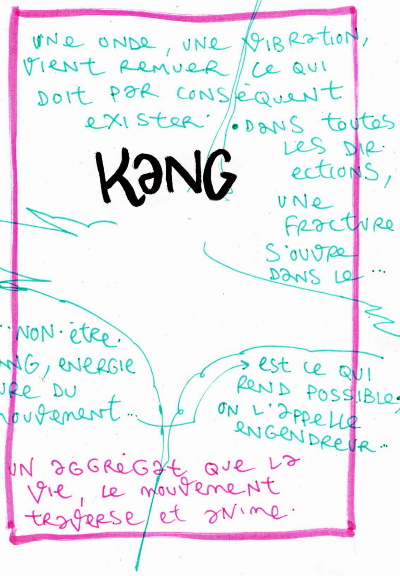 UNE ONDE, UNE VIBRATION,
VIENT REMUER CE QUI
DOIT PAR CONSÉQUENT
EXISTER. • DANS TOUTES
LES DIR-
ECTIONS,
UNE
FRACTURE
S'OUVRE
DANS LE ...
KANG
... NON-ÊTRE.
ANG, ENERGIE
URE DU
MOUVEMENT ...
EST CE QUI
REND POSSIBLE,
ON L'APPELLE
ENGENDREUR ...
UN AGGRÉGAT QUE LA
VIE, LE MOUVEMENT
TRAVERSE ET ANIME.